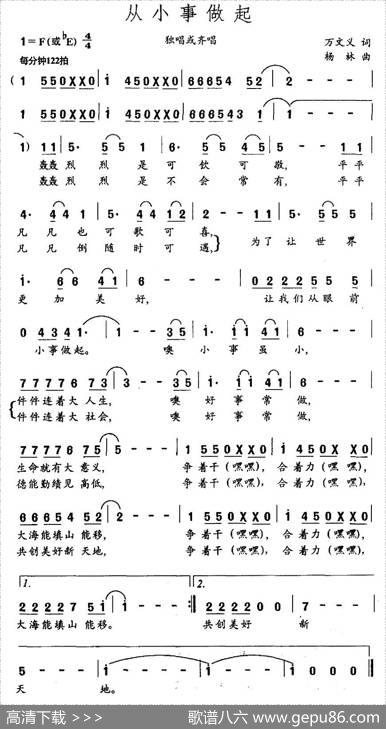 从小事做起
1=F(或bE) 4/4
独唱或齐唱
万文义 词
每分钟122拍
杨林 曲
(1 550XX0 | i 450XX0 | 6666 54 52 | 2 - - - |
1 550XX0 | i 450XX0 | 6666 54 i | i - - - |
1) 11 | 5· 5 5 1 | 6· 5 5 4 2 | 5 - - 5 5 |
轰轰 烈 烈 是 可 钦 可 敬, 平平
轰轰 烈 烈 是 不 会 常 有, 平平
4· 4 4 1 | 5· 4 4 1 2 | 2 - 11 | 5· 5 5 5 |
凡 凡 也 可 歌 可 喜,
为了 让 世 界
凡 凡 倒 随 时 可 遇,
i· 6 6 4 1 | 6 - - - | 0 2 2 2 2 5 5 5 |
更 加 美 好, 让我们从眼 前
0 4 3 4 1· | 1 - - 3 5 | i· i i i | 4 i 6 - - |
小事做起。 噢 小 事 虽 小,
7 7 7 7 7 6 7 3 | 3 - - 3 5 | i· i i 4 1 | 6 - - - |
件件连着大 人生, 噢 好 事 常 做,
件件连着大 社会, 噢 好 事 常 做,
7 7 7 7 7 6 7 5 | 5 - - - | 1 550XX0 | i 450XX0 |
生命就有大 意义, 争 着干(嘿嘿), 合 着力(嘿嘿),
德能勤绩见 高低, 争 着干(嘿嘿), 合 着力(嘿嘿),
6 6 6 6 5 4 5 2 | 2 - - - | 1 550XX0 | i 450XX0 |
大海能填山 能移, 争 着干(嘿嘿), 合 着力(嘿嘿),
共创美好新 天地, 争 着干(嘿嘿), 合 着力(嘿嘿),
1. 2.
2 2 2 2 2 7 5 i | i - - - :‖ 2 2 2 2 0 0 | 7 - - - |
大海能填山 能移。 共创美好 新
5 - - - | i - - - | i - - - | i 0 0 0 0 ‖
天 地。
高清下载 >>>
歌谱八六 www.gepu86.com